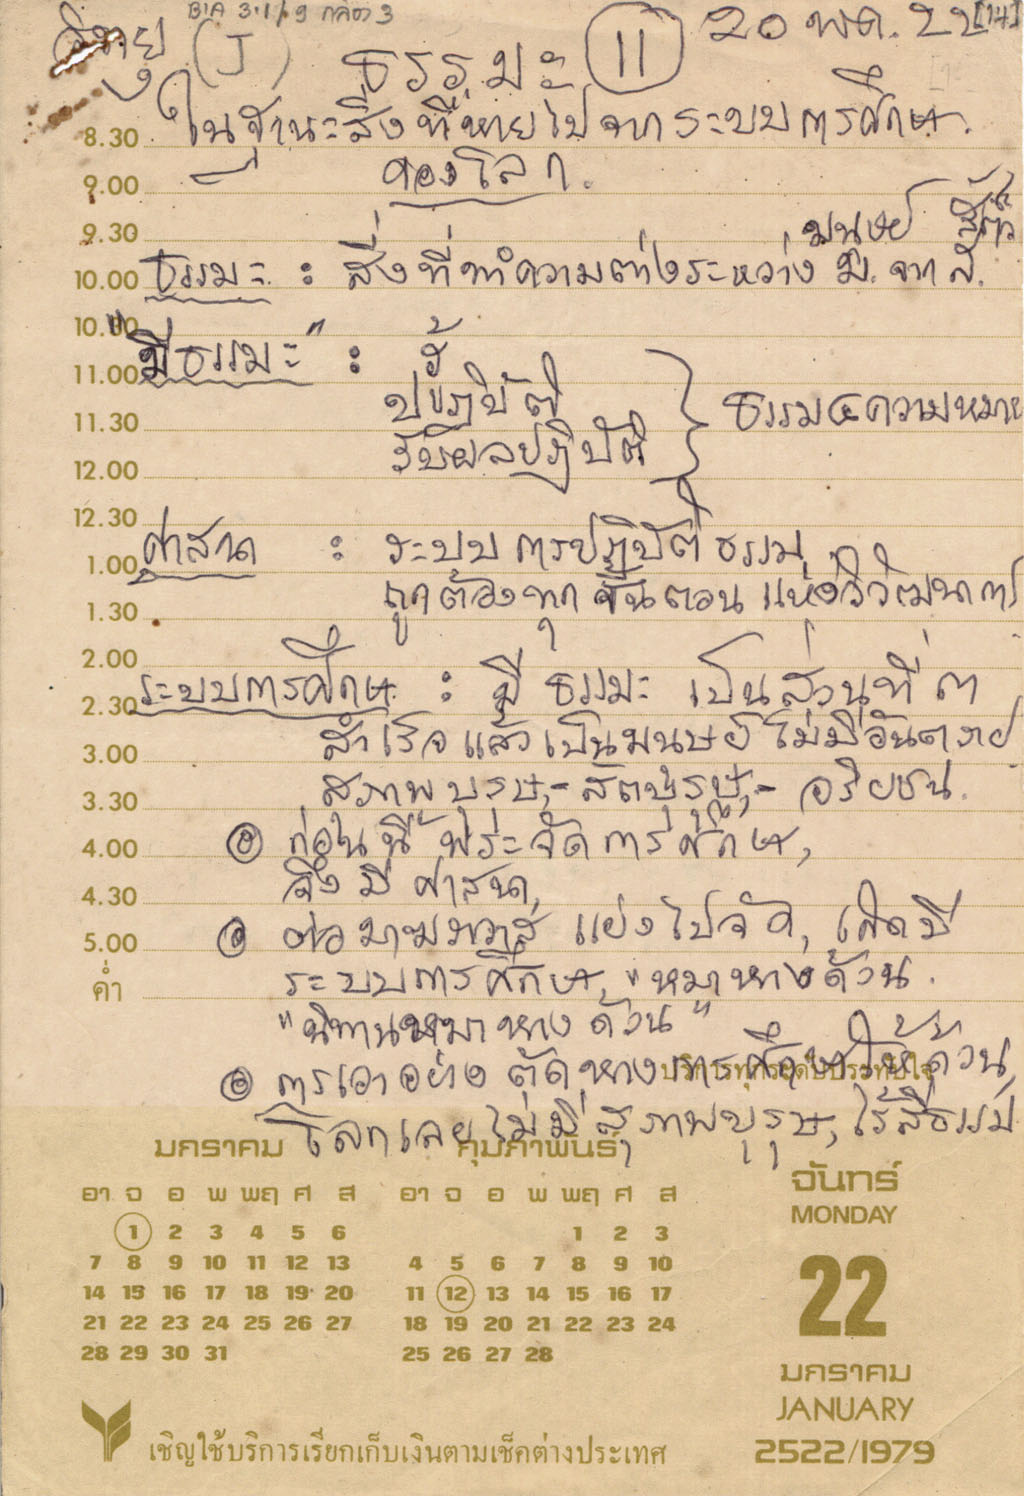 BIA 3.1/9 กล่อง 3
วิทยุ (J) ธรรมะ 11 20 พค. 22 [14]
ในฐานะสิ่งที่หายไปจากระบบการศึกษา
8.30
ของโลก.
9.00
มนุษย์ สัตว์
9.30
10.00 ธรรมะ : สิ่งที่ทำความต่างระหว่าง ม. จาก ส.
10.30
"มีธรรมะ" : รู้
11.00
ปฏิบัติ
11.30
ธรรม ๔ ความหมาย
รับผลปฏิบัติ
12.00
12.30
ศาสนา : ระบบการปฏิบัติธรรม
1.00
ถูกต้องทุกขั้นตอน แห่งวิวัฒนาการ
1.30
2.00
ระบบการศึกษา : มีธรรมะ เป็นส่วนที่ ๓
2.30
สำเร็จแล้วเป็นมนุษย์ไม่มีอันตราย
3.00
สุภาพบุรุษ,- สัตบุรุษ,- อริยชน.
3.30
๏ ก่อนนี้ พระจัดการศึกษา,
4.00
จึงมีศาสนา,
4.30
๏ ต่อมาฆราวาส แย่งไปจัด, เกิดมี
5.00
ระบบการศึกษา, "หมาหางด้วน.
ค่ำ
"นิทานหมาหางด้วน"
๏ การเอาอย่าง ตัดหางการศึกษาให้ด้วน,
บริการทุกระดับประทับใจ
โลกเลยไม่มีสุภาพบุรุษ, ไร้สีธรรม
มกราคม กุมภาพันธ์
อา จ อ พ พฤ ศ ส
1 2 3 4 5 6
7 8 9 10 11 12 13
14 15 16 17 18 19 20
21 22 23 24 25 26 27
28 29 30 31
อา จ อ พ พฤ ศ ส
1 2 3
4 5 6 7 8 9 10
11 12 13 14 15 16 17
18 19 20 21 22 23 24
25 26 27 28
จันทร์
MONDAY
22
มกราคม
JANUARY
2522/1979
เชิญใช้บริการเรียกเก็บเงินตามเช็คต่างประเทศ